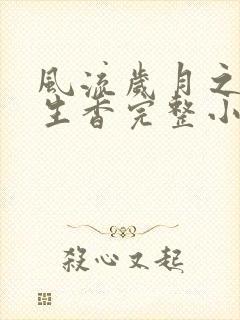 風流歲月之
生香完整小
殺心又起